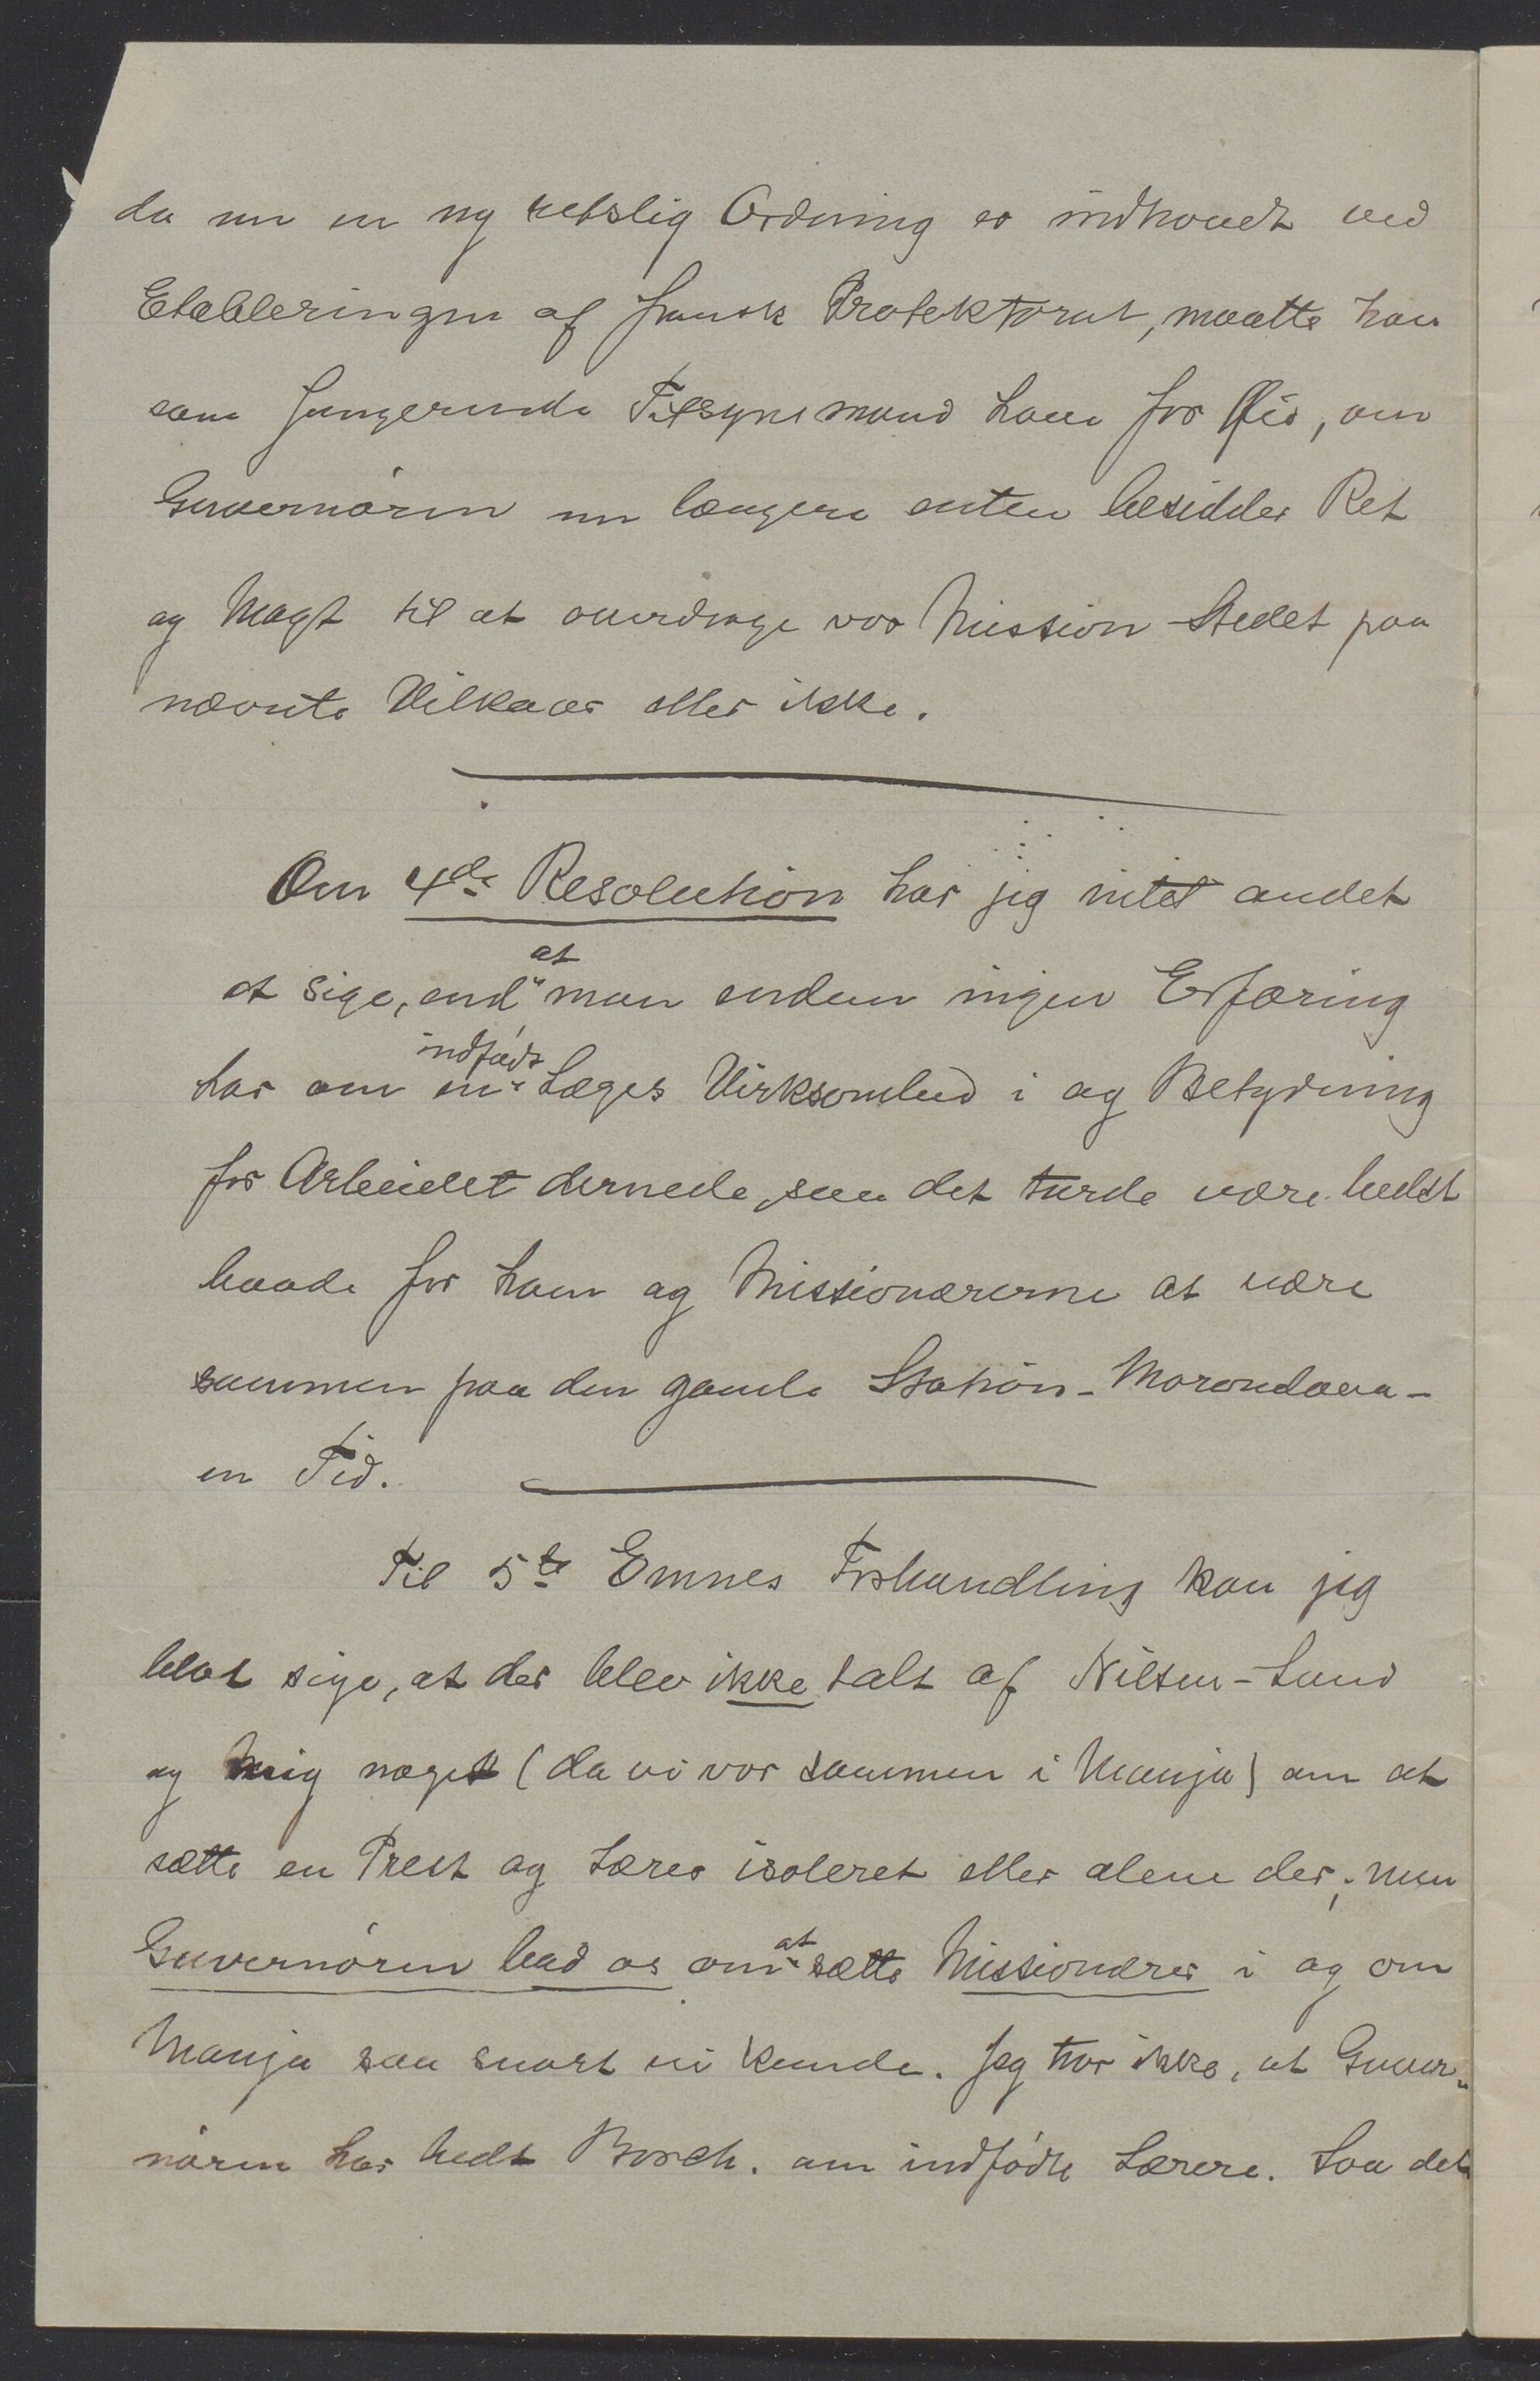 da nu en ny retslig Ordning er indtraadt ved
Etableringen af fransk Protektorat, maatte han
som fungerende Tilsynsmand have for Øie, om
Guvernøren nu længere enten besidder Ret
og Magt til at overdrage vor Mission Stedet paa
nævnte Vilkaar eller ikke.
Om 4de Resolution har jeg intet andet
at
at sige, end man endnu ingen Erfaring
indfødt
har om en Læges Virksomhed i og Betydning
for Arbeidet dernede, saa det turde være bedst
baade for ham og Missionærerne at være
sammen paa den gamle Station - Morondava -
en Tid.
Til 5te Emnes Forhandling kan jeg
blot sige, at der blev ikke talt af Nilsen-Lund
og mig noget (da vi var sammen i Manja) om at
sætte en Prest og Lærer isoleret eller alene der; men
at
Guvernøren bad os om sætte Missionærer i og om
Manja saa snart vi kunde. Jeg tror ikke, at Guver-
nøren har bedt Borch. om indfødte Lærere. Saa det